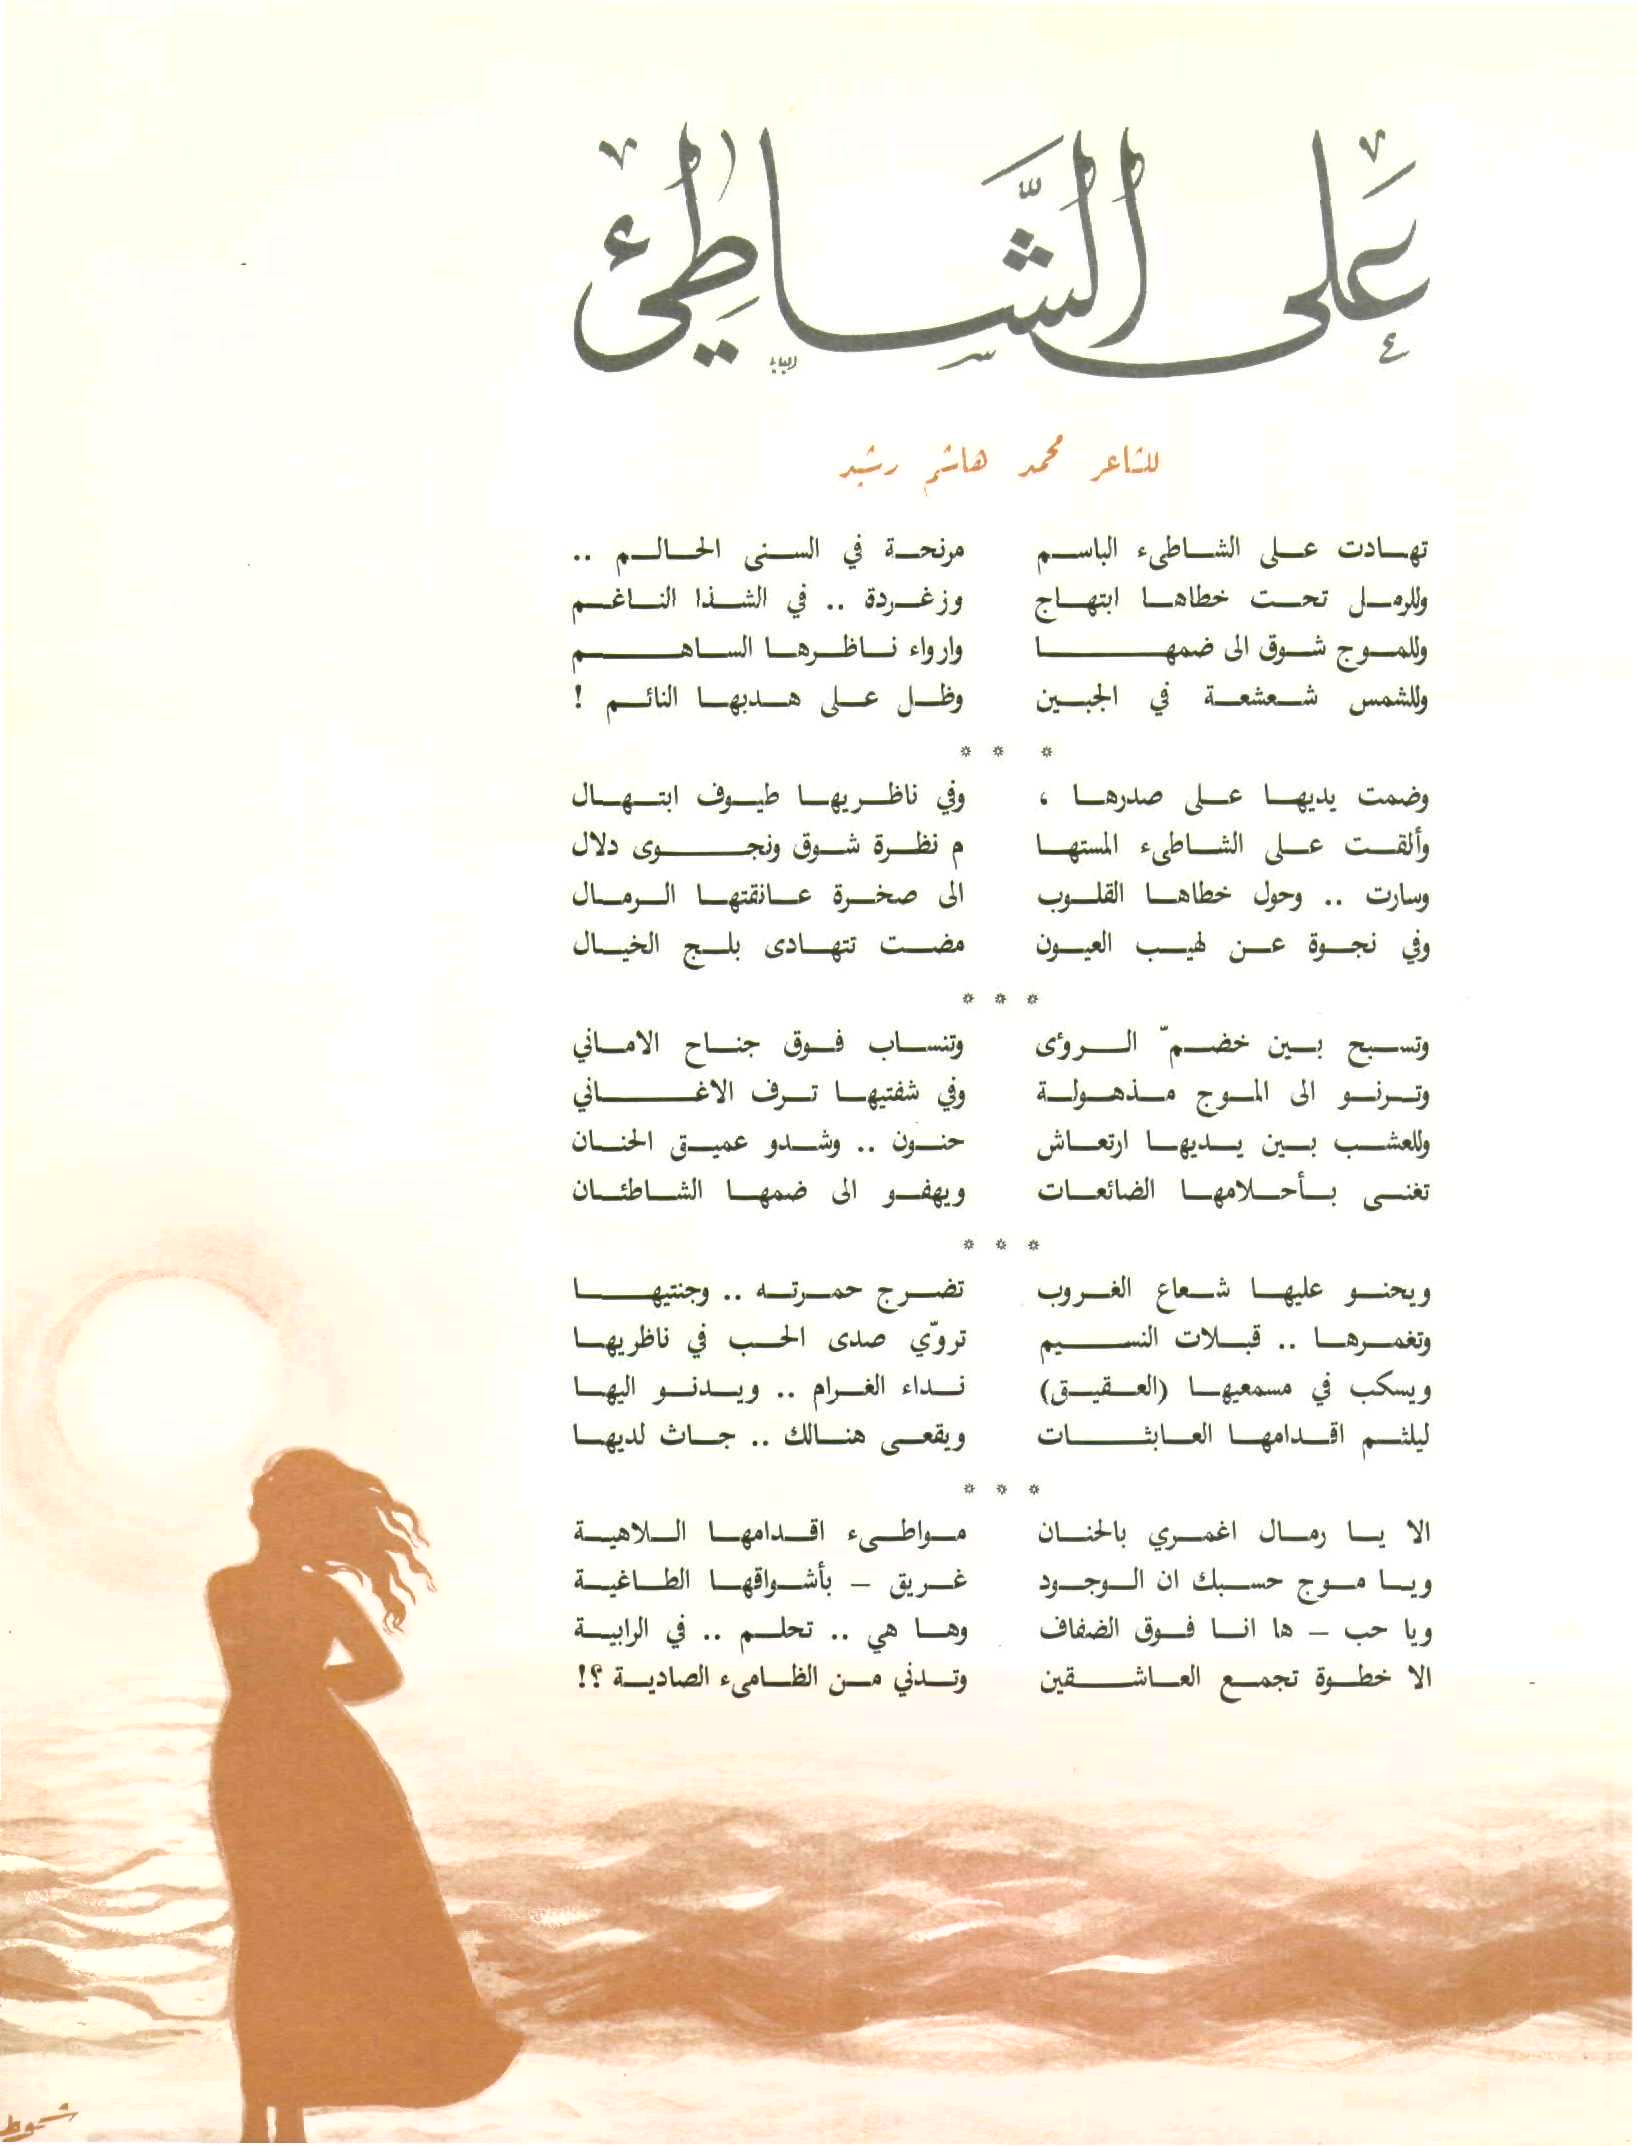 على الشاطئ
للشاعر محمد هاشم رشيد
تهادت على الشاطىء الباسم مرنحة في السنى الحالم ..
وللرمل تحت خطاها ابتهاج وزغردة .. في الشذا الناغم
وللموج شوق الى ضمها وارواء ناظرها الساهم
وللشمس شعشعة في الجبين وظل على هدبها النائم !
* * *
وضمت يديها على صدرها ، وفي ناظريها طيوف ابتهال
وألقت على الشاطىء المستها م نظرة شوق ونجوى دلال
وسارت .. وحول خطاها القلوب الى صخرة عانقتها الرمال
وفي نجوة عن لهيب العيون مضت تتهادى بلج الخيال
* * *
وتسبح بين خضمّ الرؤى وتنساب فوق جناح الاماني
وترنو الى الموج مذهولة وفي شفتيها ترف الاغاني
وللعشب بين يديها ارتعاش حنون .. وشدو عميق الحنان
تغنى بأحلامها الضائعات ويهفو الى ضمها الشاطئان
* * *
ويحنو عليها شعاع الغروب تضرج حمرته .. وجنتيها
وتغمرها .. قبلات النسيم تروّي صدى الحب في ناظريها
ويسكب في مسمعيها (العقيق) نداء الغرام .. ويدنو اليها
ليلثم اقدامها العابثات ويقعى هنالك .. جاث لديها
* * *
الا يا رمال اغمري بالحنان مواطىء اقدامها اللاهية
ويا موج حسبك ان الوجود غريق – بأشواقها الطاغية
ويا حب – ها انا فوق الضفاف وها هي .. تحلم .. في الرابية
الا خطوة تجمع العاشقين وتدني من الظامىء الصادية ؟!